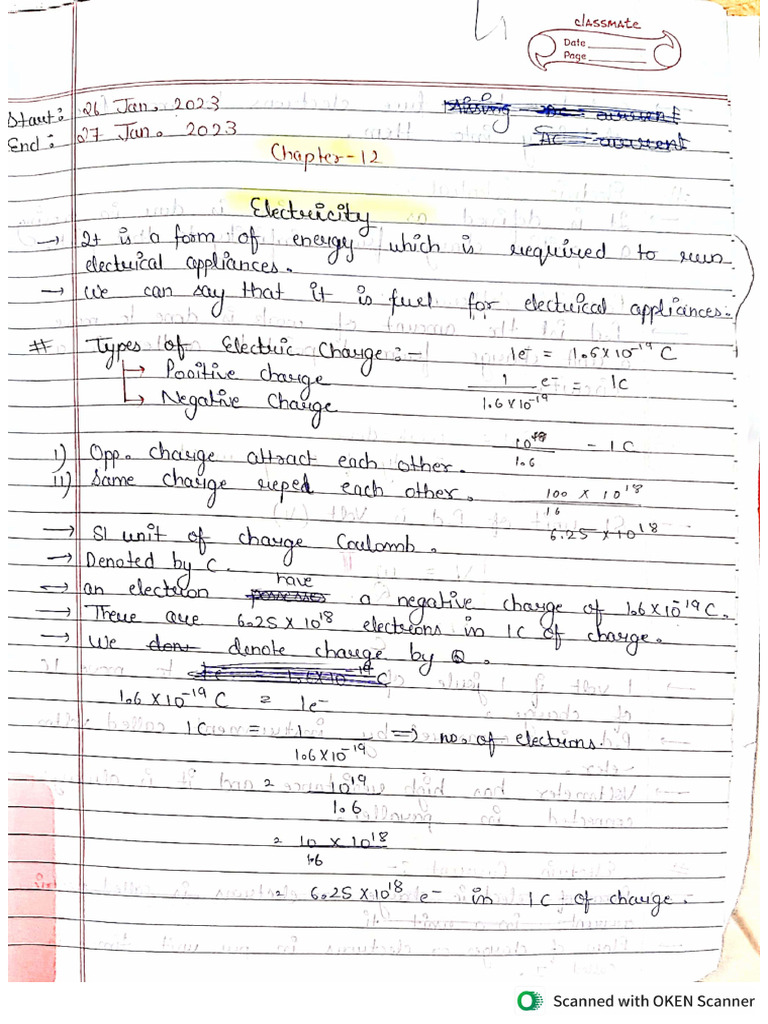 classmate
Date
Page
Start: 26 Jan. 2023
End: 27 Jan. 2023
Missing - DC current
AC current
Chapter-12
Electricity
→ It is a form of energy which is required to run
electrical appliances.
→ We can say that it is fuel for electrical appliances.
# Types of Electric Charge:-
→ Positive charge
→ Negative Charge
1e⁻ = 1.6×10⁻¹⁹ C
1/1.6×10⁻¹⁹ e⁻ = 1C
i) Opp. charge attract each other.
ii) Same charge repel each other.
10¹⁹/1.6 - 1C
100/16 × 10¹⁸
6.25×10¹⁸
→ SI unit of charge Coulomb.
→ Denoted by C.
→ an electron possesses have a negative charge of 1.6×10⁻¹⁹C.
→ There are 6.25×10¹⁸ electrons in 1C of charge.
→ We dont denote charge by Q.
1e⁻ = 1.6×10⁻¹⁹ C
1.6×10⁻¹⁹ C = 1e⁻
1C = 1/1.6×10⁻¹⁹ ⇒ no. of electrons.
= 10¹⁹/1.6
= 10 × 10¹⁸/1.6
= 6.25×10¹⁸ e⁻ in 1C of charge.
Scanned with OKEN Scanner